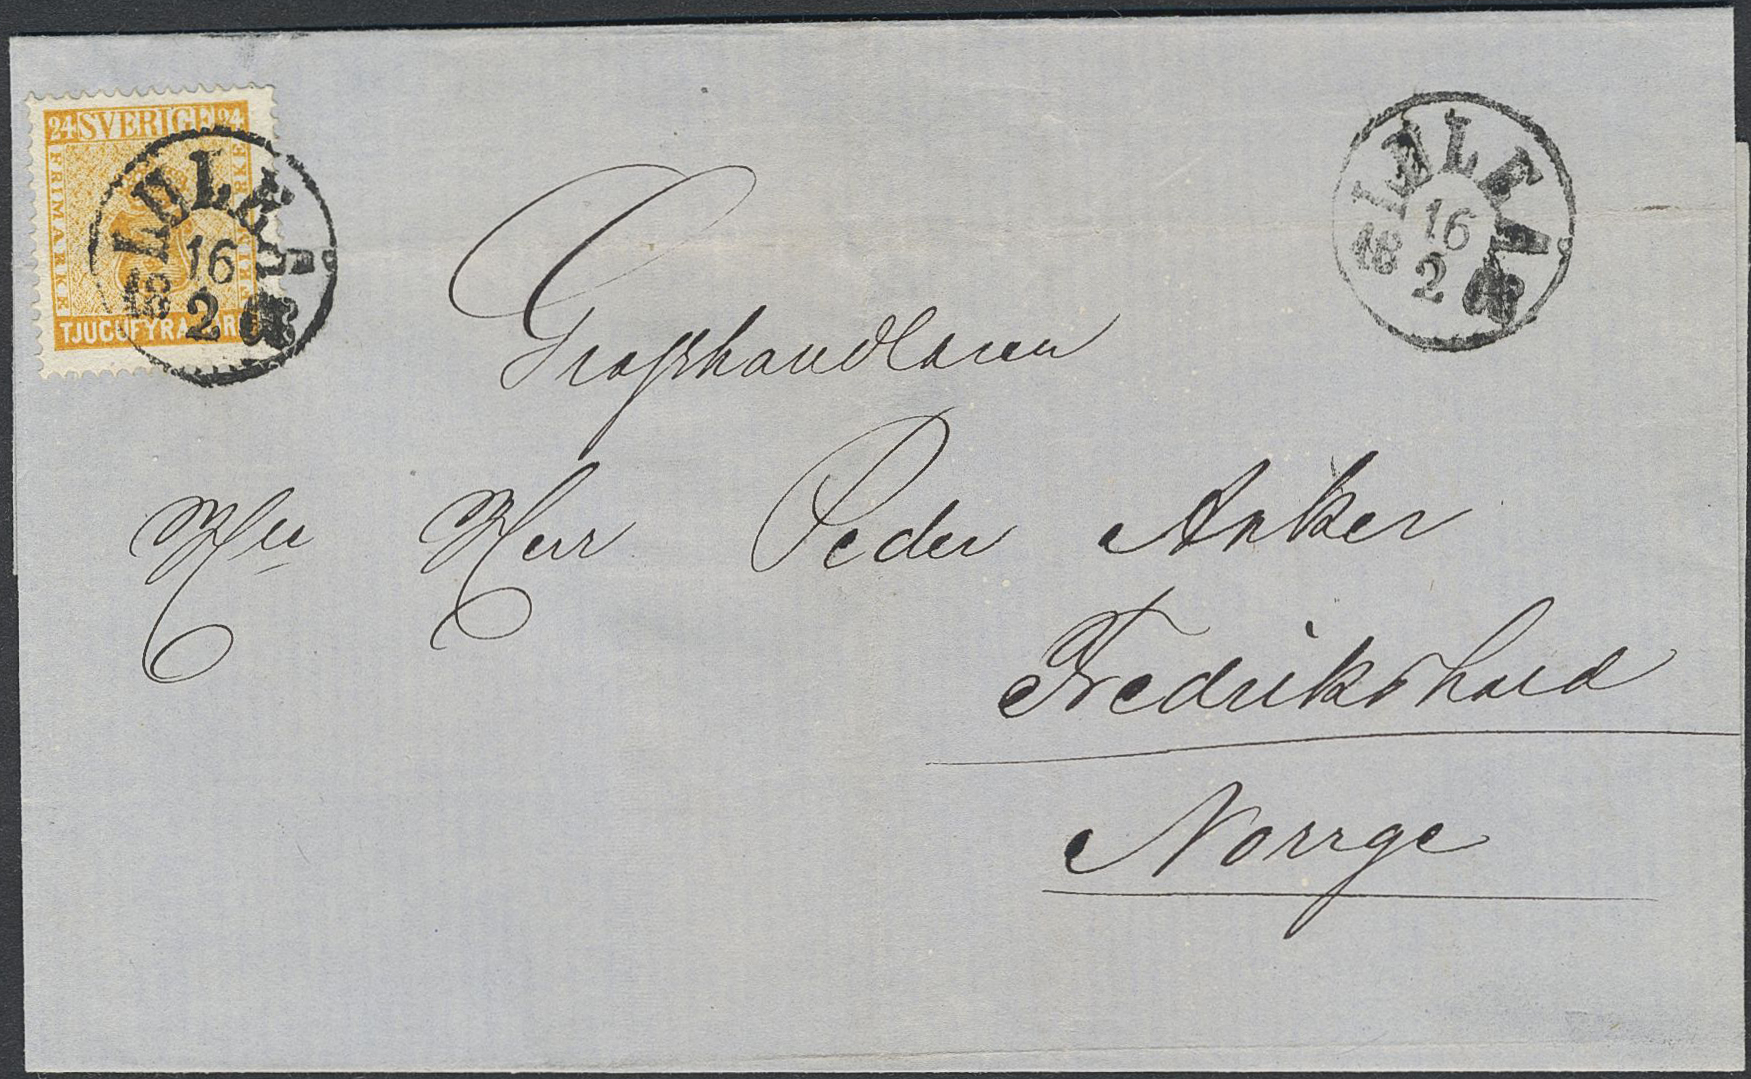 24 SVERIGE 24
FRIMÄRKE
TJUGUFYRA ÖRE
LULEÅ
16
2
18
LULEÅ
16
2
18
Grosshandlaren
Herr Peder Anker
Fredrikshald
Norrge